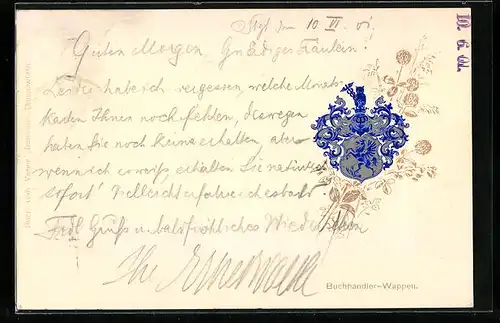 Stgt den 10. VI. 01.
10. 6. 01.
Guten Morgen Gnädiges Fräulein!
Leider habe ich vergessen, welche Monats-
karten Ihnen noch fehlen, deswegen
haben Sie noch keine erhalten, aber
wenn ich es weiss erhalten Sie natürlich
sofort! Vielleicht erfahre ich es bald?
Frdl Gruß u. baldfröhliches Wiedersehen
Ihr
Buchhändler-Wappen.